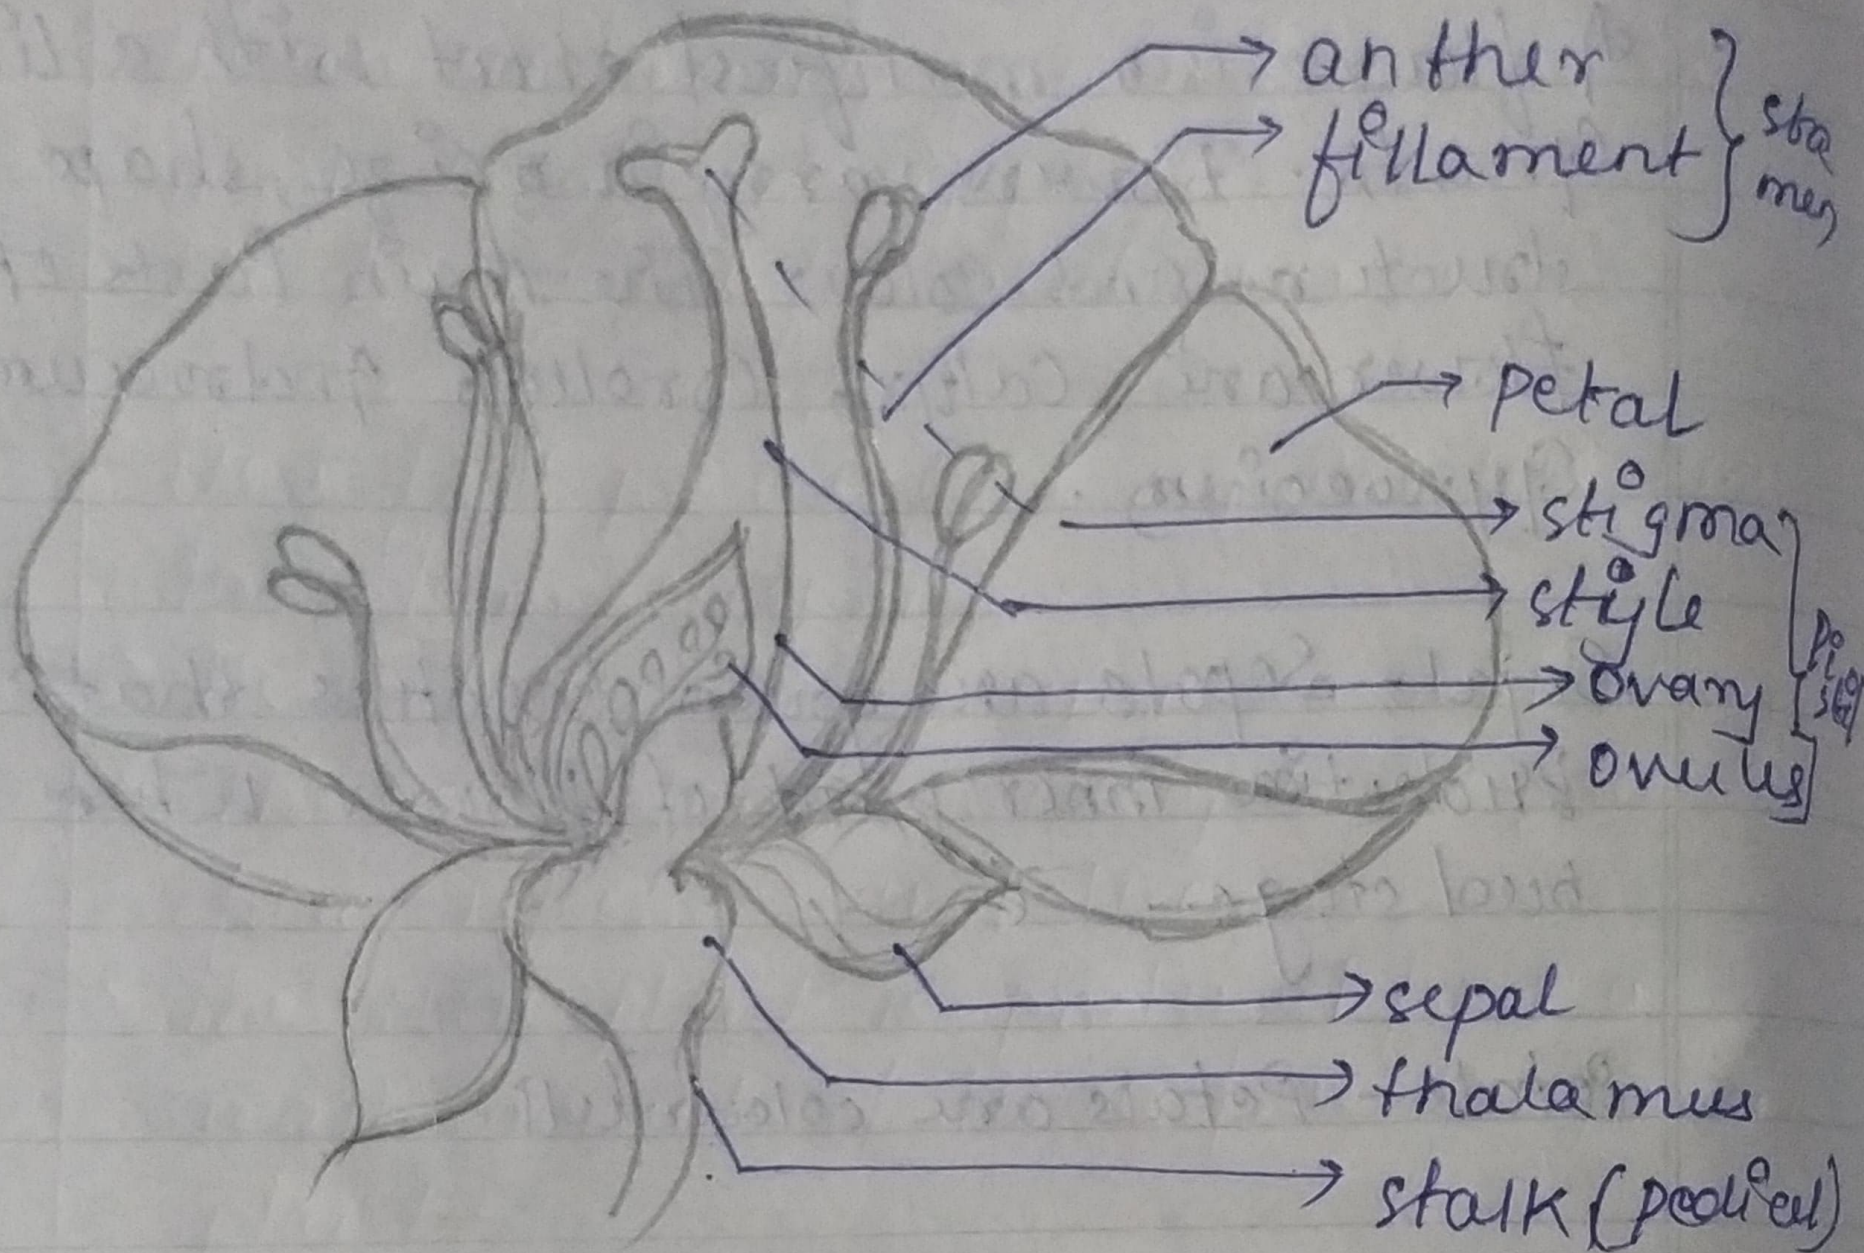 anther
fillament
sta
men
petal
stigma
style
ovary
ovules
pi
stil
sepal
thalamus
stalk (pedicel)